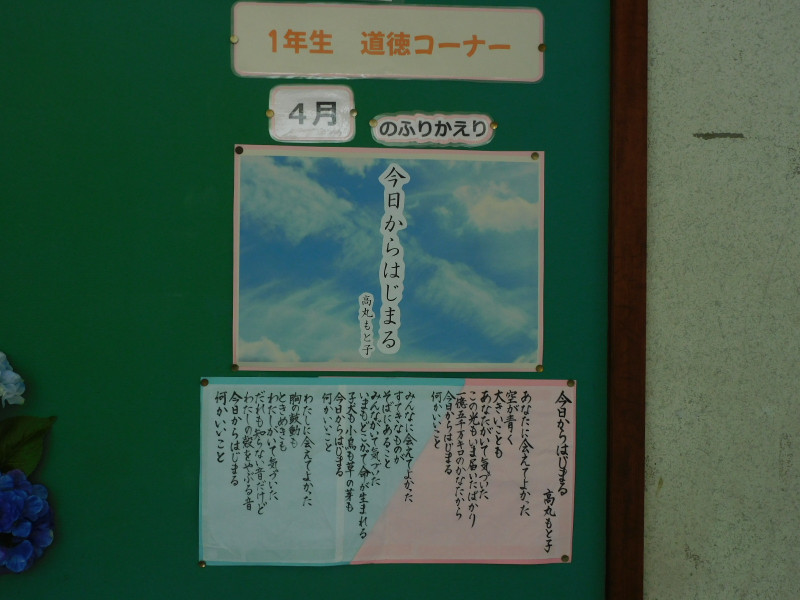 1年生 道徳コーナー
4月
のふりかえり
今日からはじまる
高丸もと子
今日からはじまる
高丸もと子
あなたに会えてよかった
空が青く
大きいことも
あなたがいて気づいた
この光もいま届いたばかり
一億五千万キロのかなたから
今日からはじまる
何かいいこと
みんなに会えてよかった
すてきなものが
そばにあること
みんながいて気づいた
いまもどこかで命が生まれる
子犬も小鳥も草の芽も
今日からはじまる
何かいいこと
わたしに会えてよかった
胸の鼓動も
ときめきも
わたしがいて気づいた
だれも知らない音だけど
わたしの殻をやぶる音
今日からはじまる
何かいいこと